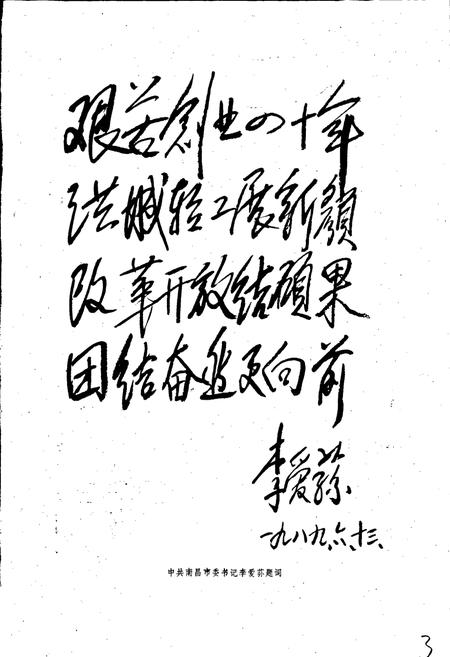 艰苦创业四十年
洪城轻工展新颜
改革开放结硕果
团结奋进更向前
李爱荪
一九八九.六.十三.
中共南昌市委书记李爱荪题词
3